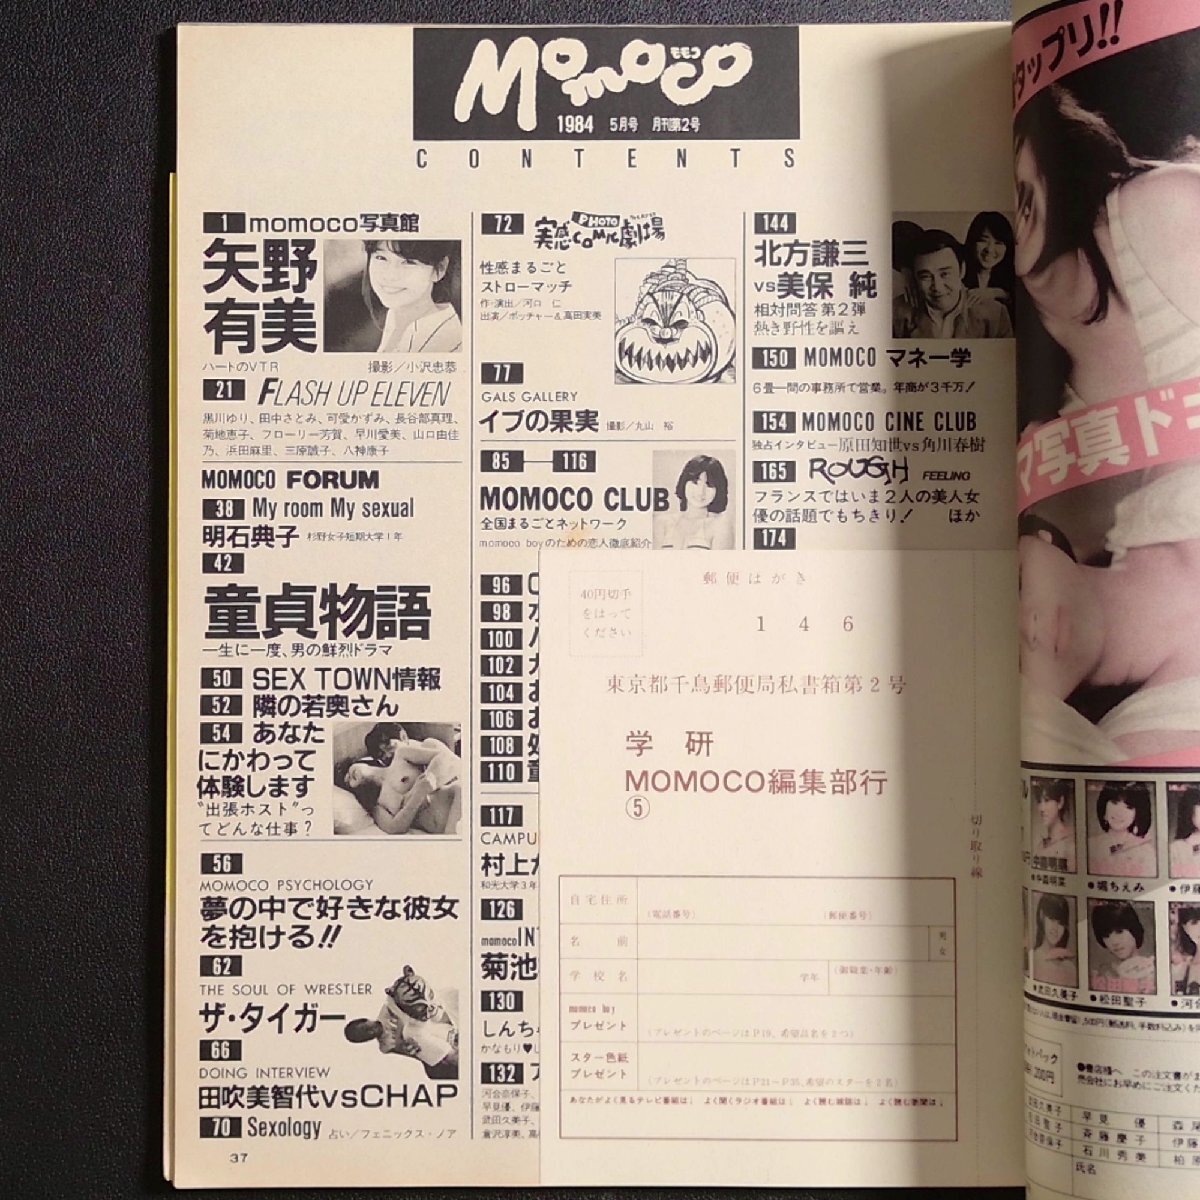 MOMOCO モモコ
1984 5月号 月刊第2号
CONTENTS
1 momoco写真館
矢野
有美
ハートのVTR 撮影／小沢忠恭
21 FLASH UP ELEVEN
黒川ゆり、田中さとみ、可愛かずみ、長谷部真理、
菊地恵子、フローリー芳賀、早川愛美、山口由佳
乃、浜田麻里、三原誠子、八神康子
MOMOCO FORUM
38 My room My sexual
明石典子 杉野女子短期大学1年
42
童貞物語
一生に一度、男の鮮烈ドラマ
50 SEX TOWN情報
52 隣の若奥さん
54 あなた
にかわって
体験します
“出張ホスト”っ
てどんな仕事？
56
MOMOCO PSYCHOLOGY
夢の中で好きな彼女
を抱ける!!
62
THE SOUL OF WRESTLER
ザ・タイガー
66
DOING INTERVIEW
田吹美智代vsCHAP
70 Sexology 占い／フェニックス・ノア
37
72 実感PHOTO COMIC劇場
性感まるごと
ストローマッチ
作・演出／河口 仁
出演／ポッチャー＆高田実美
77
GALS GALLERY
イブの果実 撮影／丸山 裕
85—116
MOMOCO CLUB
全国まるごとネットワーク
momoco boyのための恋人徹底紹介
96
98
100
102
104
106
108
110
117
CAMPU
村上
和光大学3年
126
momoco IN
菊池
130
しんち
かなもり♥
132
河合奈保子、
早見優、伊藤
武田久美子、
倉沢淳美、高
144
北方謙三
vs美保 純
相対問答 第2弾
熱き野性を謳え
150 MOMOCO マネー学
6畳一間の事務所で営業。年商が3千万！
154 MOMOCO CINE CLUB
独占インタビュー原田知世vs角川春樹
165 ROUGH FEELING
フランスではいま2人の美人女
優の話題でもちきり！ ほか
174
郵便はがき
40円切手
をはって
ください
146
東京都千鳥郵便局私書箱第2号
学研
MOMOCO編集部行
⑤
切り取り線
自宅住所 （電話番号） （郵便番号）
名前 男 女
学校名 学年 （御職業・年齢）
momoco boy
プレゼント （プレゼントのページはP19、希望品名を2つ）
スター色紙
プレゼント （プレゼントのページはP21〜P35、希望のスターを2名）
あなたがよく見るテレビ番組は； よく聞くラジオ番組は； よく読む雑誌は； よく読む新聞は；
タップリ!!
マ写真ド
●中森明菜
●堀ちえみ
●伊藤
●武田久美子
●松田聖子
●河合
フォトパック
200円
●書店様へ この注文書が
売会社にお早めにご注文く
早見 優
斉藤慶子
石川秀美
森尾
伊藤
柏原
氏名